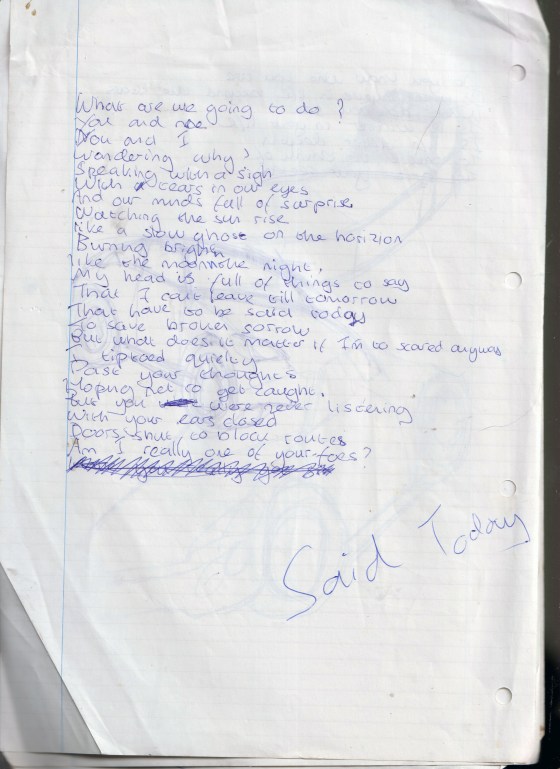 What are we going to do ?
You and me
You and I
Wandering why?
Speaking with a sigh
With tears in our eyes
And our minds full of surprise
Watching the sun rise
like a slow ghost on the horizion
Burning bright
like the moon the night.
My head is full of things to say
That I can't leave till tomorrow
That have to be said today
To save broken sorrow
But what does it matter if I'm to scared anyway
I tiptoed quietly
Past your thoughts
Hoping not to get caught.
But you were never listening
With your ears closed
Doors shut to block routes
Am I really one of your foes?
Said Today